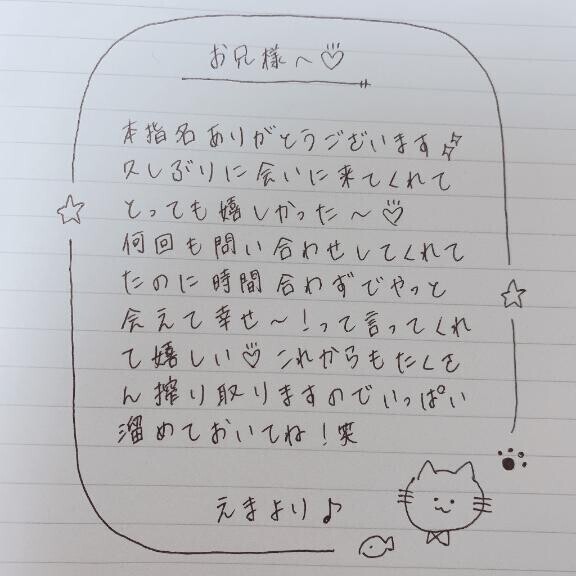 お兄様へ♡
本指名ありがとうございます
久しぶりに会いに来てくれて
とっても嬉しかった〜♡
何回も問い合わせしてくれて
たのに時間合わずでやっと
会えて幸せ〜！って言ってくれ
て嬉しい♡これからもたくさ
ん搾り取りますのでいっぱい
溜めておいてね！笑
えまより♪